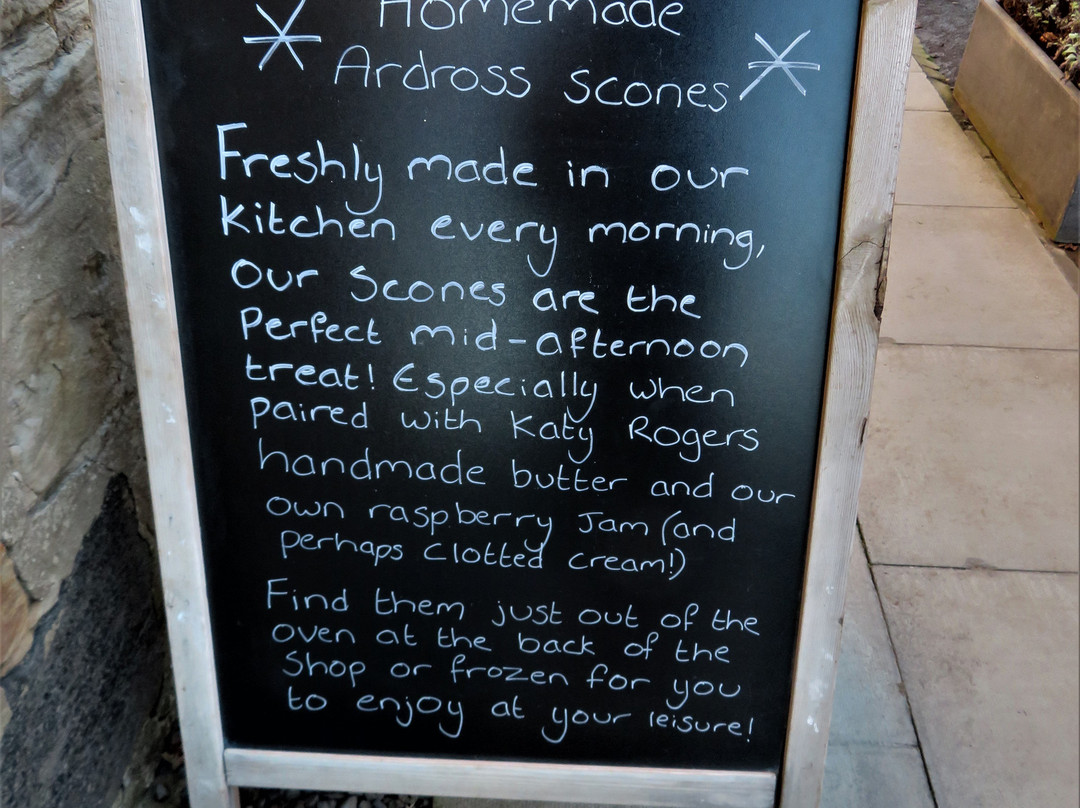 Homemade
Ardross scones
Freshly made in our
kitchen every morning,
our scones are the
perfect mid-afternoon
treat! Especially when
paired with Katy Rogers
handmade butter and our
own raspberry Jam (and
perhaps clotted cream!)
Find them just out of the
oven at the back of the
shop or frozen for you
to enjoy at your leisure!